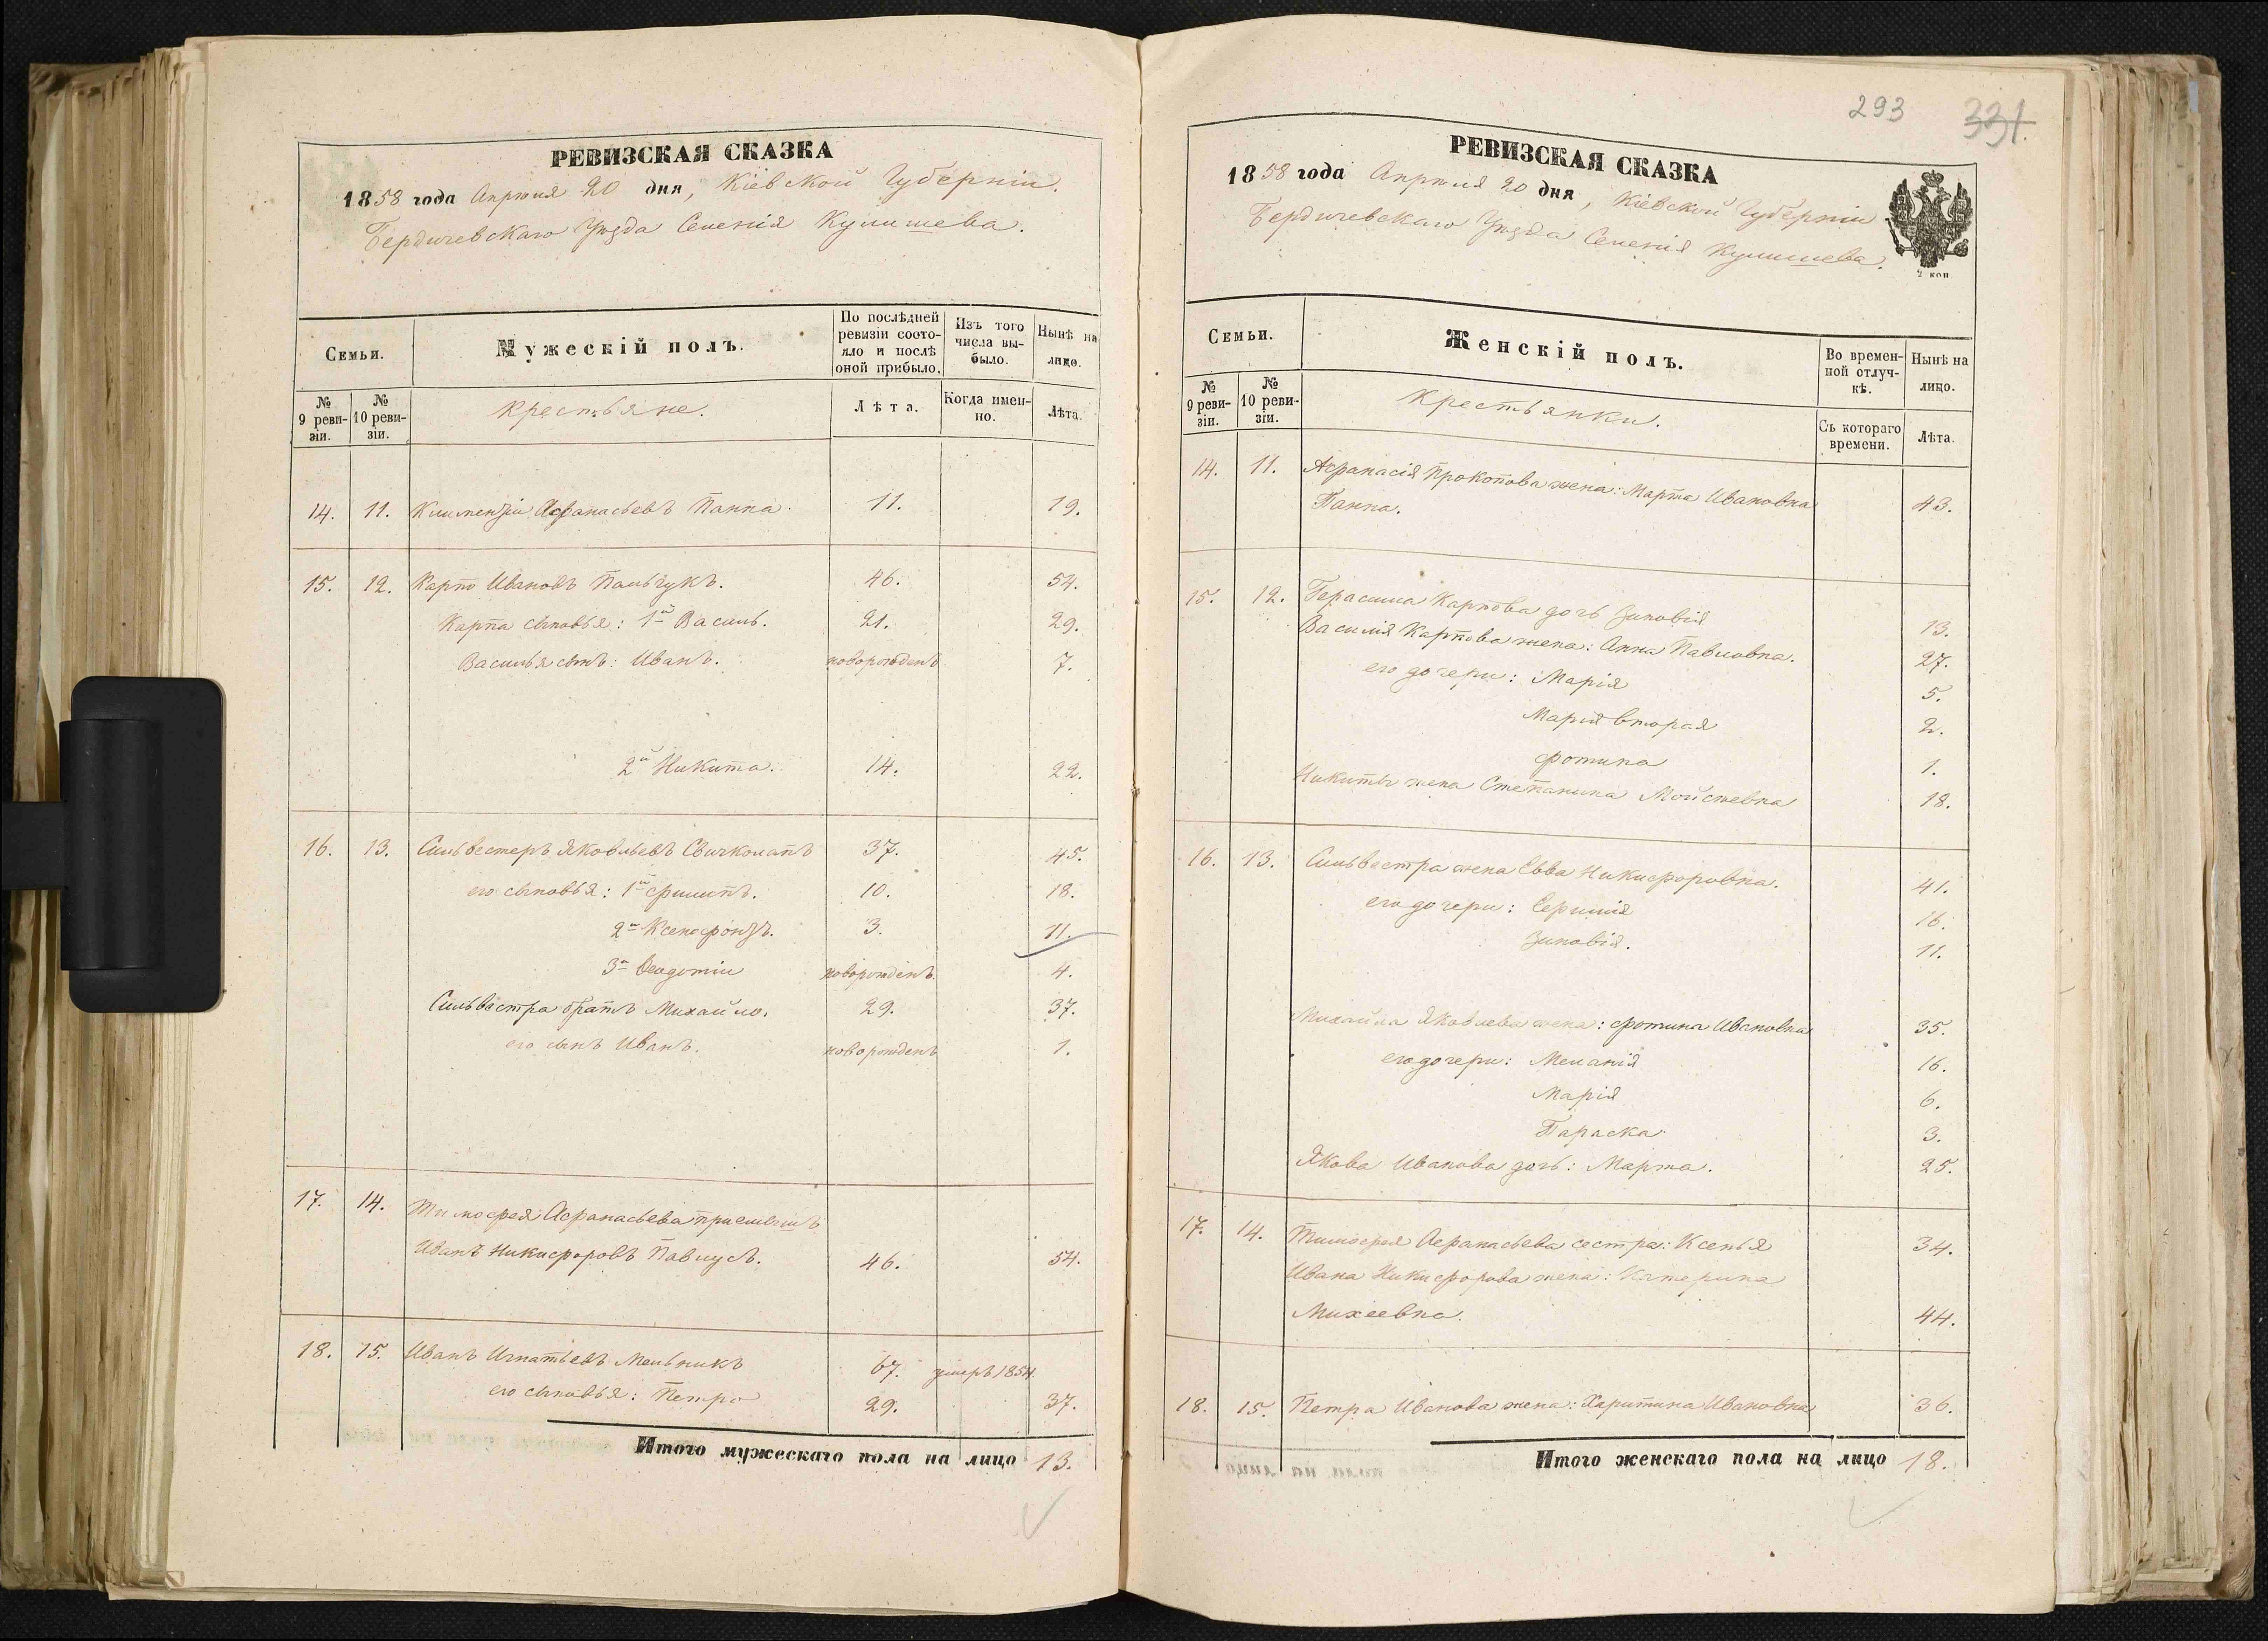 РЕВИЗСКАЯ СКАЗКА
1858 года Апрѣля 20 дня, Кіевской Губерніи.
Бердичевскаго Уѣзда Селенія Кулишева.
Семьи.
Мужескій полъ.
По послѣдней ревизіи состояло и послѣ оной прибыло.
Изъ того числа выбыло.
Нынѣ на лицо.
№ 9 ревизіи.
№ 10 ревизіи.
Крестьяне.
Лѣта.
Когда именно.
Лѣта.
14. 11. Климентій Афанасьевъ Панна. 11. 19.
15. 12. Карпо Ивановъ Пальчукъ. 46. 54.
Карпа сыновья: 1й Василь. 21. 29.
Василья сынъ: Иванъ. новорожденъ 7.
2й Никита. 14. 22.
16. 13. Сильвестеръ Яковлевъ Свичколапъ 37. 45.
его сыновья: 1й Филипъ. 10. 18.
2й Ксенофонтъ. 3. 11.
3й Феодотій новорожденъ. 4.
Сильвестра братъ Михайло. 29. 37.
его сынъ Иванъ. новорожденъ 1.
17. 14. Тимофея Афанасьева приемышъ
Иванъ Никифоровъ Павлусь. 46. 54.
18. 15. Иванъ Игнатьевъ Мельникъ 67. умеръ 1854.
его сыновья: Петро 29. 37.
Итого мужескаго пола на лицо 13.
293 331.
РЕВИЗСКАЯ СКАЗКА
1858 года Апрѣля 20 дня, Кіевской Губерніи
Бердичевскаго Уѣзда Селенія Кулишева.
2 коп
Семьи.
Женскій полъ.
Во временной отлучкѣ.
Нынѣ на лицо.
№ 9 ревизіи.
№ 10 ревизіи.
Крестьянки.
Съ котораго времени.
Лѣта.
14. 11. Афанасія Прокопова жена: Марта Ивановна
Панна. 43.
15. 12. Герасима Карпова дочь Зиновія 13.
Василія Карпова жена: Анна Павловна. 27.
его дочери: Марія 5.
Марія вторая 2.
Фотина 1.
Никиты жена Степанида Мойсѣевна 18.
16. 13. Сильвестра жена Евва Никифоровна. 41.
его дочери: 16.
Зиновія. 11.
Михайла Яковлева жена: Фотина Ивановна 35.
его дочери: Меланія 16.
Марія 6.
Параска 3.
Якова Иванова дочь: Марта. 25.
17. 14. Тимофея Афанасьева сестра: Ксенья 34.
Ивана Никифорова жена: Катерина
Михеевна. 44.
18. 15. Петра Иванова жена: Харитина Ивановна 36.
Итого женскаго пола на лицо 18.